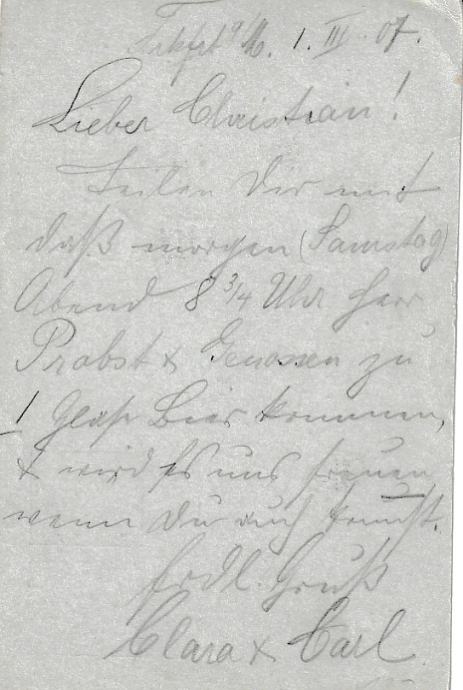 Frkfrt a/M. 1. III. 07.
Lieber Christian!
Teilen Dir mit
daß morgen (Samstag)
Abend 8 3/4 Uhr Herr
Probst & Genossen zu
1 Glas Bier kommen,
& wird es uns freuen
wenn Du auch kommst.
frdl. Gruß
Clara & Carl